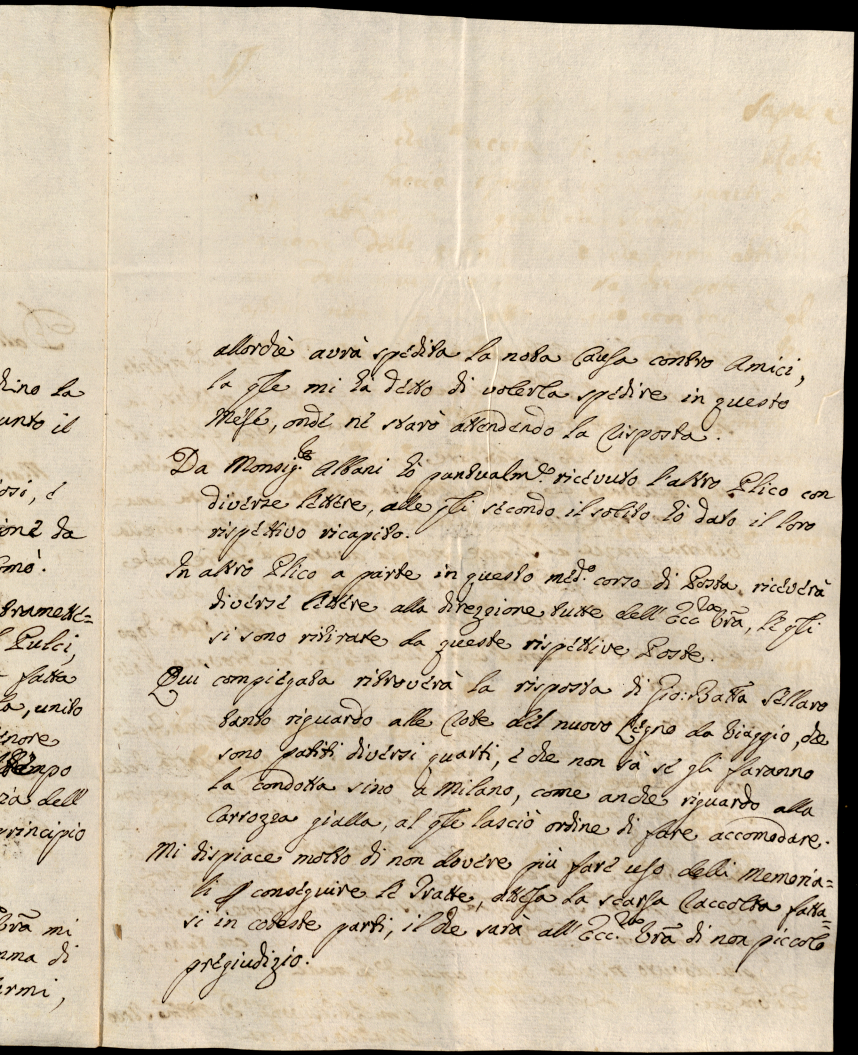 dino la
unto il
osi, è
ione da
omò.
trametté=
l Pulci,
fatta
la, unito
inore
tempo
zia dell'
principio
Vrã mi
mma di
armi,
allorchè avrà spedita la nota Causa contro Amici,
la qle mi ha detto di volerla spedire in questo
Mese, onde ne starò attendendo la risposta.
Da Monsig.re Albani hò puntualm.e ricevuto l'altro Plico con
diverse lettere, alle qli secondo il solito hò dato il loro
rispettivo ricapito.
In altro Plico a parte in questo med.o corso di Posta riceverà
diverse lettere alla direzzione tutte dell'Ecc.za Vrã, le qli
si sono ritirate da queste rispettive Poste.
Quì compiegata ritroverà la risposta di Gio: Batta Sellaro
tanto riguardo alle Rote del nuovo Legno da Viaggio, che
sono patiti diversi quarti, e che non sà se gli faranno
la condotta sino a Milano, come anche riguardo alla
Carrozza gialla, al qle lasciò ordine di fare accomodare.
Mi dispiace molto di non dovere più fare uso delli Memoria=
li p conseguire le Tratte, attesa la scarsa Raccolta fatta=
si in coteste parti, il che sarà all'Ecc.za Vrã di non piccolo
pregiudizio.